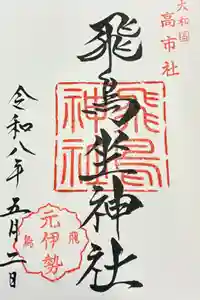 大和国
高市社
飛鳥坐神社
飛鳥
神社
元伊勢
飛鳥
令和八年
五月二日